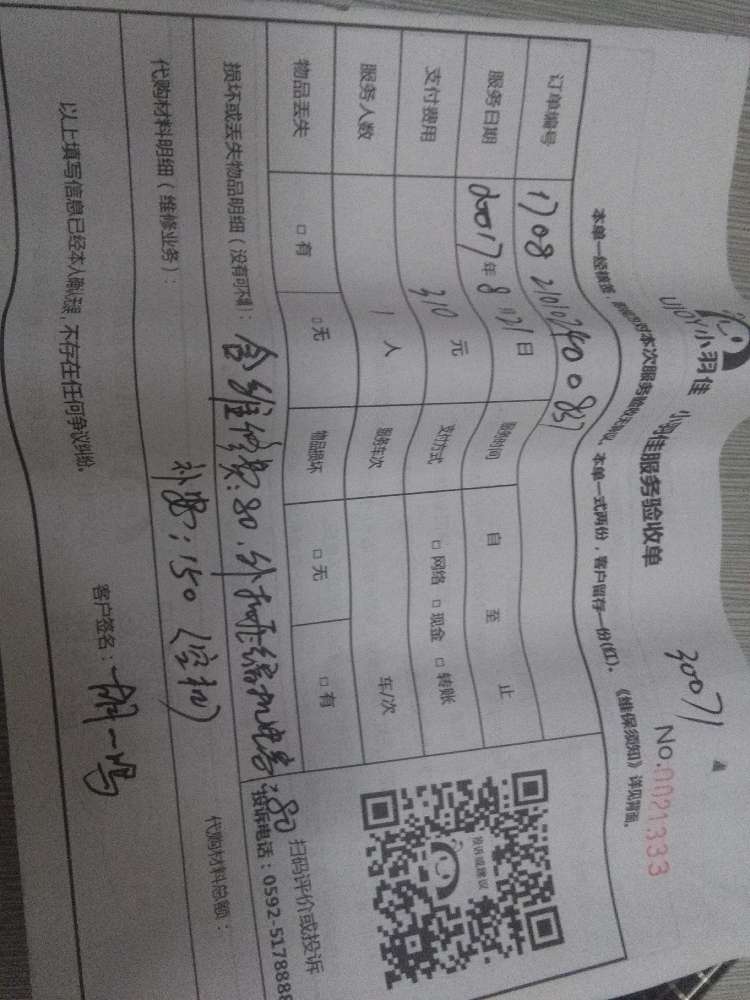 30071
UJOY小羽佳 小羽佳服务验收单
No.0021333
本单一式两份，客户留存一份(红)。《维保须知》详见背面。
订单编号
服务日期 2017年8月21日 服务时间 自 至 止
支付费用 310元 支付方式 □网络 □现金 □转账
服务人数 1人 服务车次 车/次
物品丢失 □有 □无 物品损坏 □无 □有
扫码评价或投诉
投诉电话：0592-5178888
损坏或丢失物品明细（没有可不填）：含维修费:80.外机压缩机电容:80
代购材料明细（维修业务）： 补安:150(空机) 代购材料总额：
以上填写信息已经本人确认无误，不存在任何争议纠纷。 客户签名：
投诉或建议